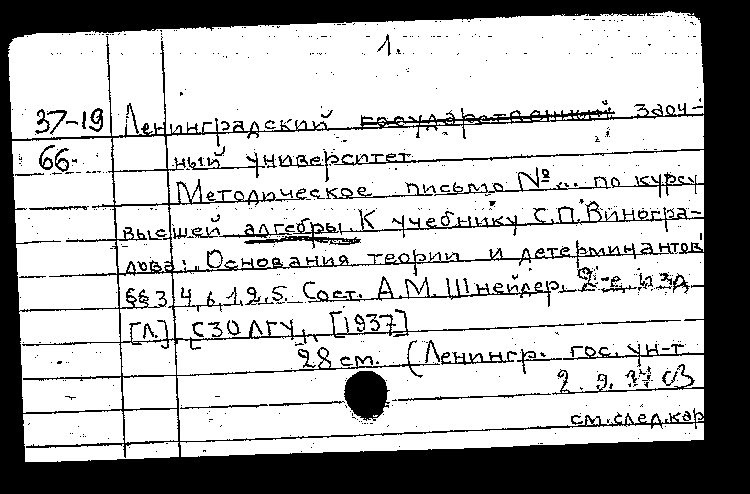 1.
37-19 Ленинградский государственный заоч-
66. ный университет.
Методическое письмо № ... по курсу
высшей алгебры. К учебнику С.П. Виногра-
дова: Основания теории и детерминантов
§§ 3, 4, 6, 1, 2, 5. Сост. А.М. Шнейдер. 2-е изд
[Л.], СЗО ЛГУ, [1937]
28 см. (Ленингр. гос. ун-т
2. 9. 37
см. след. кар